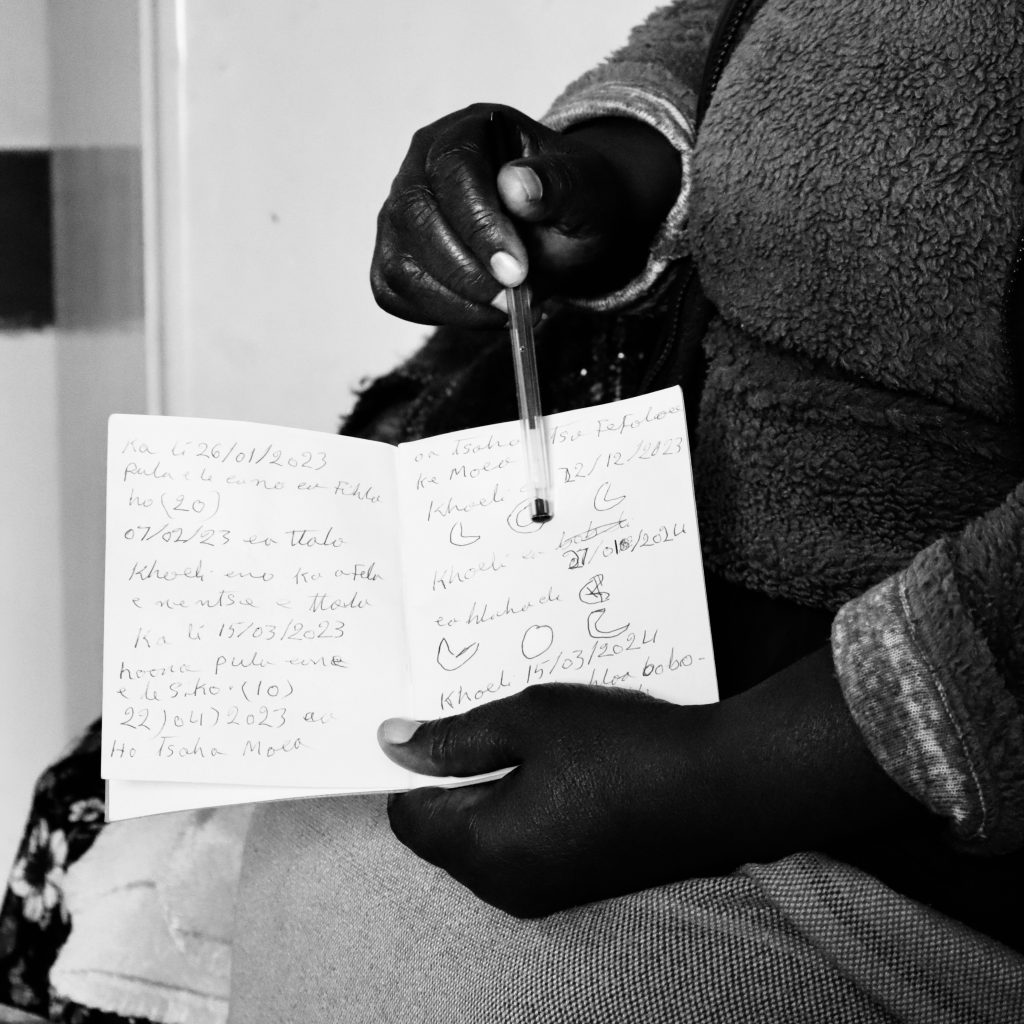 Ka li 26/01/2023
pula e le eano ea Fihla
ho (20)
07/02/23 ea ttala
Khoeli eno Ka afela
e nentse e ttala
Ka li 15/03/2023
hoona pula eane
e le Siko. (10)
22)04)2023 ea
Ho Tsaha Moea
oa Tsaha Tsa Fefoloea
ke Moea
Khoeli 12/12/2023
Khoeli ea
27/01/2024
ea hlahade
Khoeli 15/03/2024
bobo-